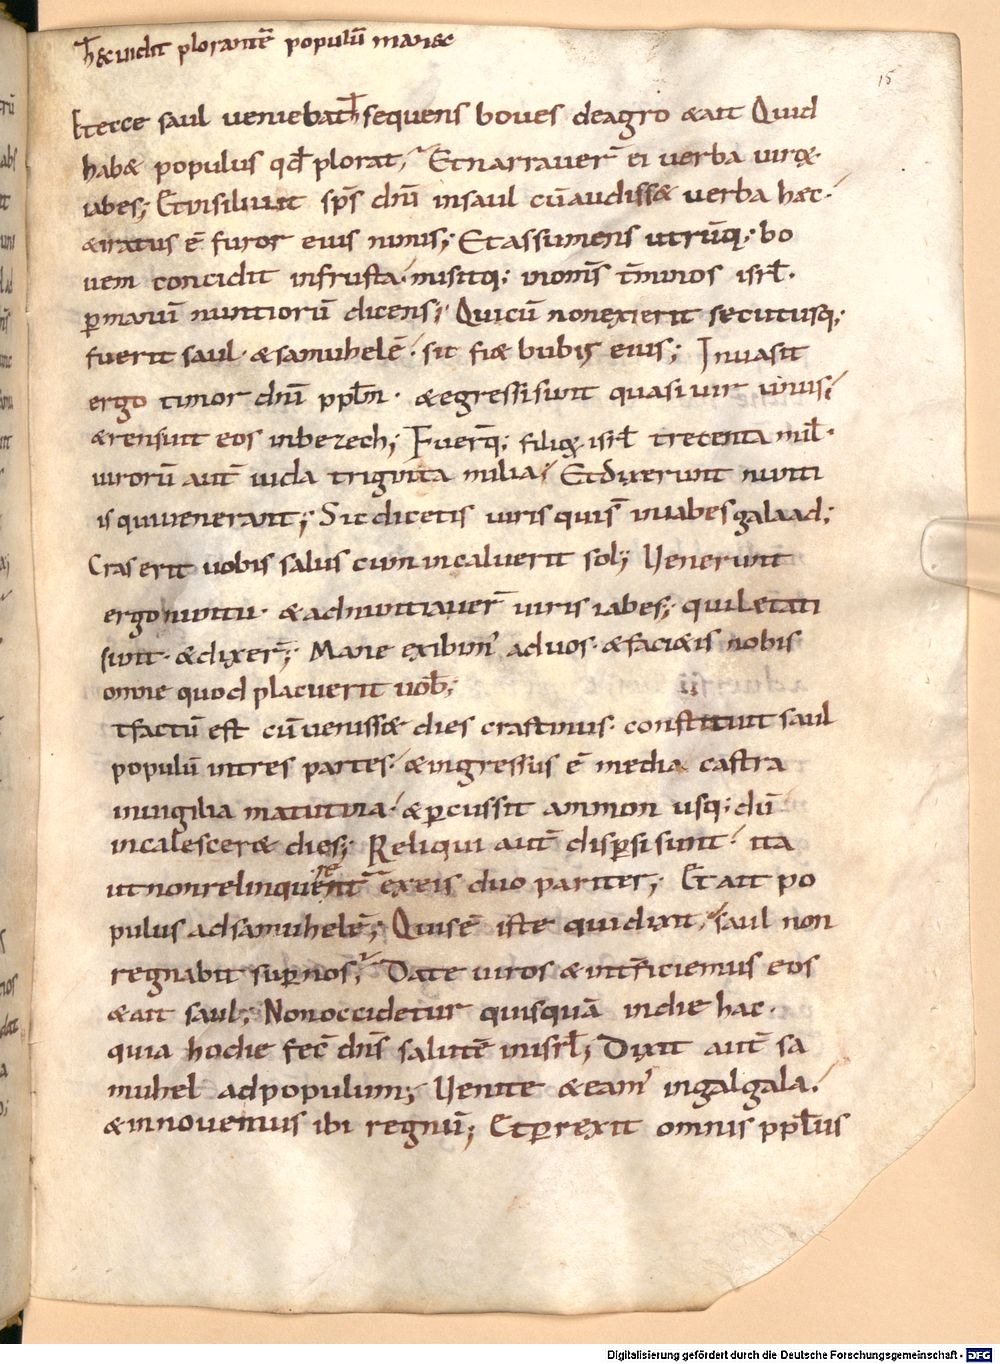 h̄ &uidit plorantē populū mane&
15
Etecce saul ueniebat h̄ sequens boues deagro &ait Quid
hab& populus qđ plorat; Etnarrauer̄ ei uerba uirorꝝ
iabes; Etinsiliuit sp̄s dn̄i insaul cū audiss& uerba haec.
&iratus ē furor eius nimis; Et assumens utrūq; bo
uem concidit infrusta. misitq; inom̄s t̄minos isrł.
ꝑmanū nuntiorū dicens; Quicū nonexierit secutusq;
fuerit saul. &samuhelē. sic fi& bubꝰ eius; Inuasit
ergo timor dn̄i ppłm. &egressi sunt quasi uir unus;
&rensuit eos inbezech; Fuer̄q; filiorꝝ isrł trecenta mił.
uirorū aut̄ iuda triginta milia; Etdixerunt nunti
is quiuenerant; Sic dicetis uiris quis̄ iniabesgalaad;
Cras erit uobis salus cum incaluerit sol; Uenerunt
ergo nuntii. &adnuntiauer̄ uiris iabes; quilętati
sunt. &dixer̄; Mane exibimꝰ aduos. &faci&is nobis
omne quod placuerit uob̄;
tfactū est cū ueniss& dies crastinus. constituit saul
populū intres partes. &ingressus ē media castra
inuigilia matutina. &ꝑcussit ammon usq; dū
incalescer& dies; Reliqui aut̄ disꝑsi sunt. ita
utnonrelinquerent̄ exeis duo pariter; Et ait po
pulus adsamuhelē; Quis ē iste quidixit, saul non
regnabit suꝑnos; Date uiros &int̄ficiemus eos
&ait saul; Nonoccidetur quisquā indie hac.
quia hodie fec̄ dn̄s salutē inisrł; Dixit aut̄ sa
muhel adpopulum; Uenite &eamꝰ ingalgala.
&innouemus ibi regnū; Etꝑrexit omnis ppłus
Digitalisierung gefördert durch die Deutsche Forschungsgemeinschaft - DFG